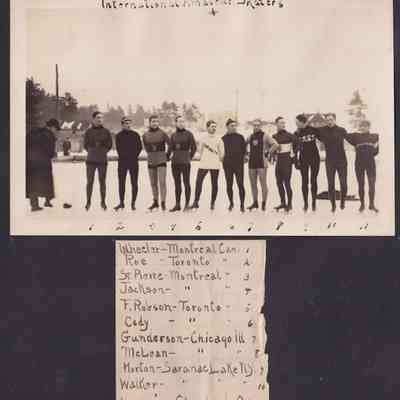 International Amateur Skaters
1 2 3 4 5 6 7 8 9 10 11
Wheeler-Montreal Can. 1
Roe - Toronto " 2
St. Pierre-Montreal " 3
Jackson- " " 4
F. Robson-Toronto - 5
Cody - " " 6
Gunderson-Chicago Ill 7
McLean- " " 8
Horton-Saranac Lake N.Y. 9
Walker- " " 10